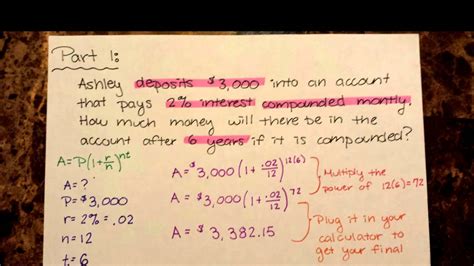 Part 1:
Ashley deposits $3,000 into an account
that pays 2% interest compounded montly.
How much money will there be in the
account after 6 years if it is compounded?
A=P(1+r/n)^nt
A=?
P=$3,000
r=2%=.02
n=12
t=6
A=$3,000(1+.02/12)^12(6)
A=$3,000(1+.02/12)^72
A=$3,382.15
Multiply the
power of 12(6)=72
Plug it in your
calculator to
get your final